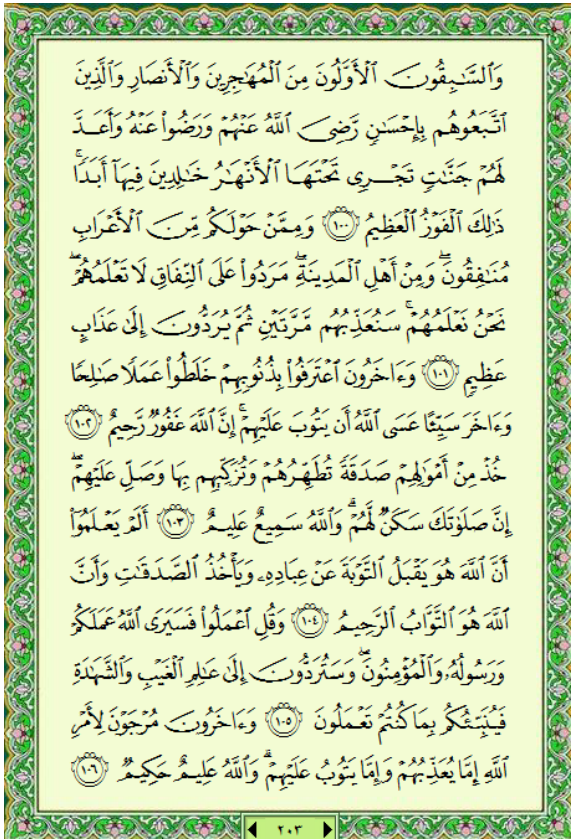 وَٱلسَّـٰبِقُونَ ٱلْأَوَّلُونَ مِنَ ٱلْمُهَـٰجِرِينَ وَٱلْأَنصَارِ وَٱلَّذِينَ
ٱتَّبَعُوهُم بِإِحْسَـٰنٍ رَّضِىَ ٱللَّهُ عَنْهُمْ وَرَضُوا۟ عَنْهُ وَأَعَدَّ
لَهُمْ جَنَّـٰتٍ تَجْرِى تَحْتَهَا ٱلْأَنْهَـٰرُ خَـٰلِدِينَ فِيهَآ أَبَدًا ۚ
ذَٰلِكَ ٱلْفَوْزُ ٱلْعَظِيمُ ١٠٠ وَمِمَّنْ حَوْلَكُم مِّنَ ٱلْأَعْرَابِ
مُنَـٰفِقُونَ ۖ وَمِنْ أَهْلِ ٱلْمَدِينَةِ ۖ مَرَدُوا۟ عَلَى ٱلنِّفَاقِ لَا تَعْلَمُهُمْ ۖ
نَحْنُ نَعْلَمُهُمْ ۚ سَنُعَذِّبُهُم مَّرَّتَيْنِ ثُمَّ يُرَدُّونَ إِلَىٰ عَذَابٍ
عَظِيمٍ ١٠١ وَءَاخَرُونَ ٱعْتَرَفُوا۟ بِذُنُوبِهِمْ خَلَطُوا۟ عَمَلًا صَـٰلِحًا
وَءَاخَرَ سَيِّئًا عَسَى ٱللَّهُ أَن يَتُوبَ عَلَيْهِمْ ۚ إِنَّ ٱللَّهَ غَفُورٌ رَّحِيمٌ ١٠٢
خُذْ مِنْ أَمْوَٰلِهِمْ صَدَقَةً تُطَهِّرُهُمْ وَتُزَكِّيهِم بِهَا وَصَلِّ عَلَيْهِمْ ۖ
إِنَّ صَلَوٰتَكَ سَكَنٌ لَّهُمْ ۗ وَٱللَّهُ سَمِيعٌ عَلِيمٌ ١٠٣ أَلَمْ يَعْلَمُوٓا۟
أَنَّ ٱللَّهَ هُوَ يَقْبَلُ ٱلتَّوْبَةَ عَنْ عِبَادِهِۦ وَيَأْخُذُ ٱلصَّدَقَـٰتِ وَأَنَّ
ٱللَّهَ هُوَ ٱلتَّوَّابُ ٱلرَّحِيمُ ١٠٤ وَقُلِ ٱعْمَلُوا۟ فَسَيَرَى ٱللَّهُ عَمَلَكُمْ
وَرَسُولُهُۥ وَٱلْمُؤْمِنُونَ ۖ وَسَتُرَدُّونَ إِلَىٰ عَـٰلِمِ ٱلْغَيْبِ وَٱلشَّهَـٰدَةِ
فَيُنَبِّئُكُم بِمَا كُنتُمْ تَعْمَلُونَ ١٠٥ وَءَاخَرُونَ مُرْجَوْنَ لِأَمْرِ
ٱللَّهِ إِمَّا يُعَذِّبُهُمْ وَإِمَّا يَتُوبُ عَلَيْهِمْ ۗ وَٱللَّهُ عَلِيمٌ حَكِيمٌ ١٠٦
٢٠٣